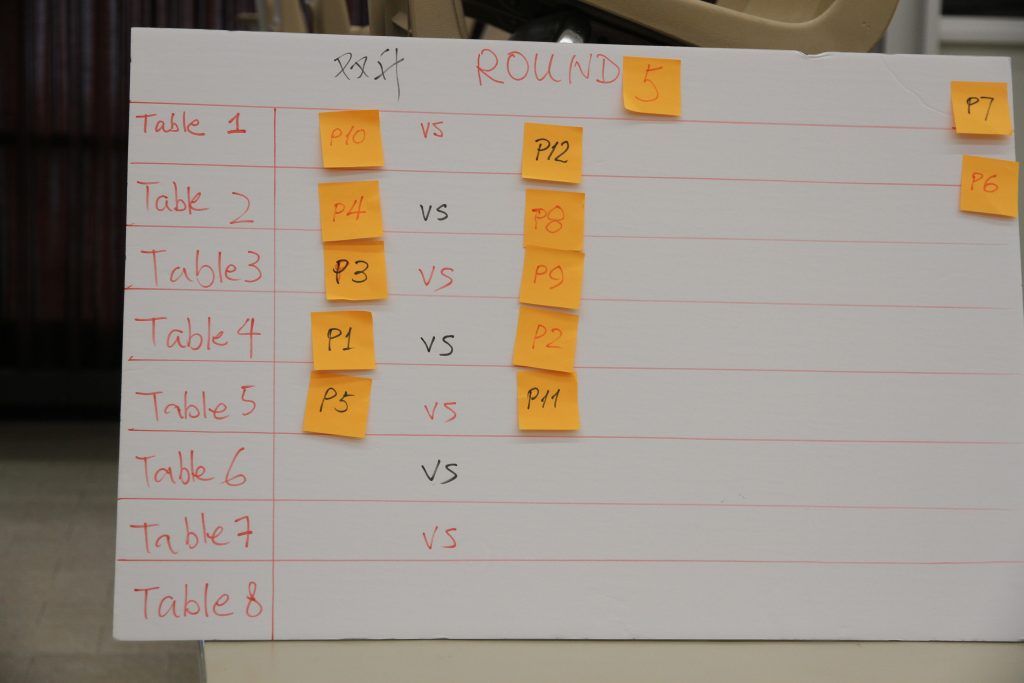 对阵 ROUND 5
P7
Table 1 P10 vs P12
P6
Table 2 P4 vs P8
Table 3 P3 vs P9
Table 4 P1 vs P2
Table 5 P5 vs P11
Table 6 vs
Table 7 vs
Table 8